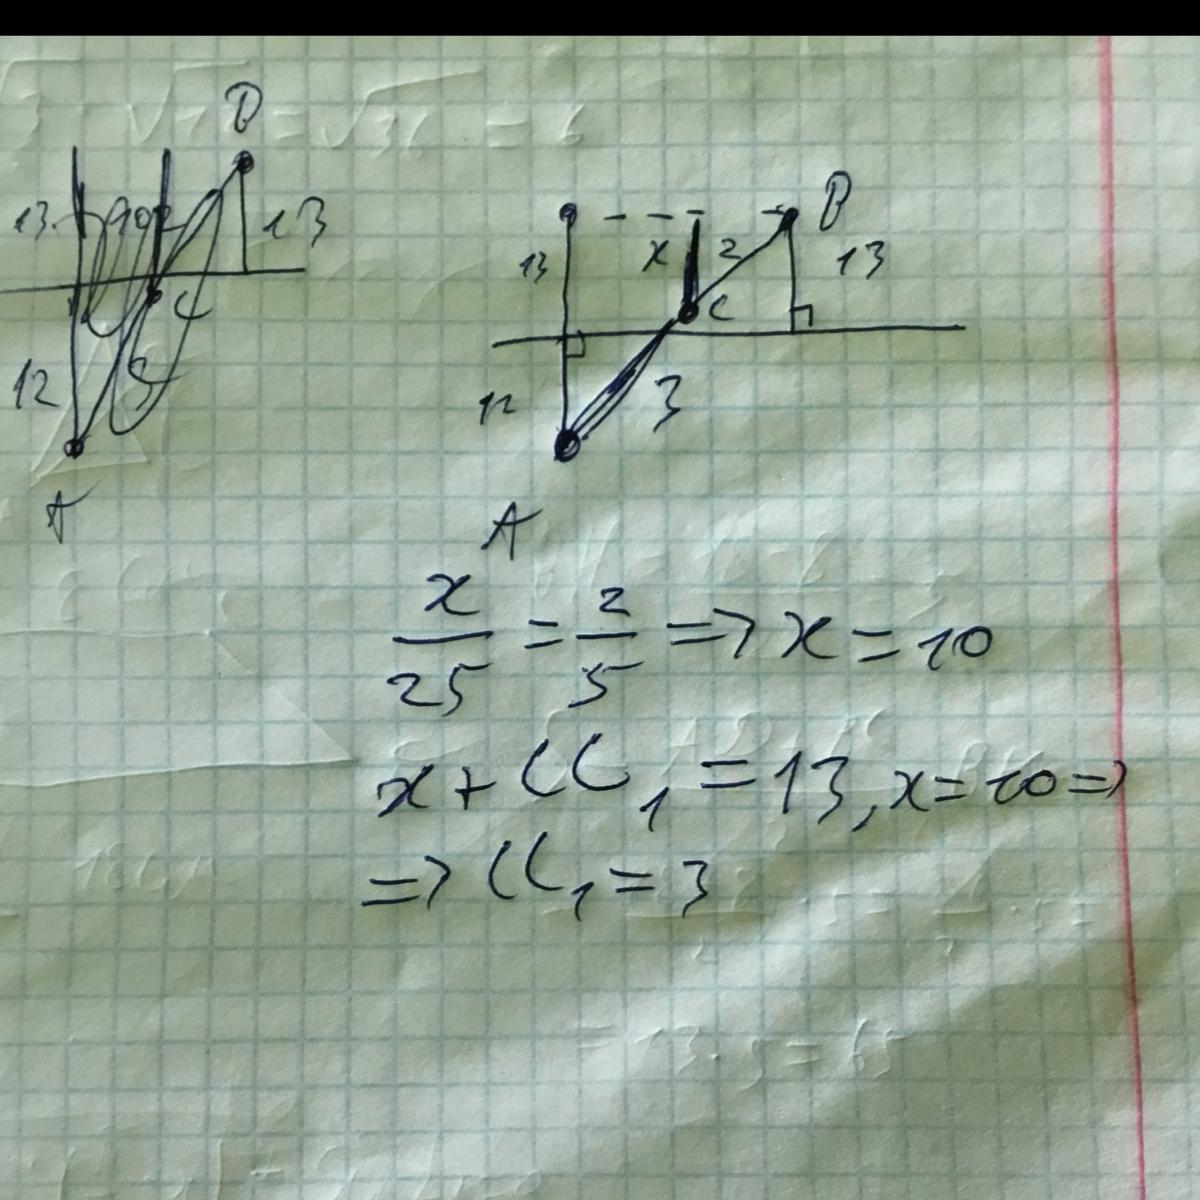 B
13
13
C
12
A
B
13
x
2
13
C
12
3
A
x/25 = 2/5 => x = 10
x + CC₁ = 13, x = 10 =>
=> CC₁ = 3